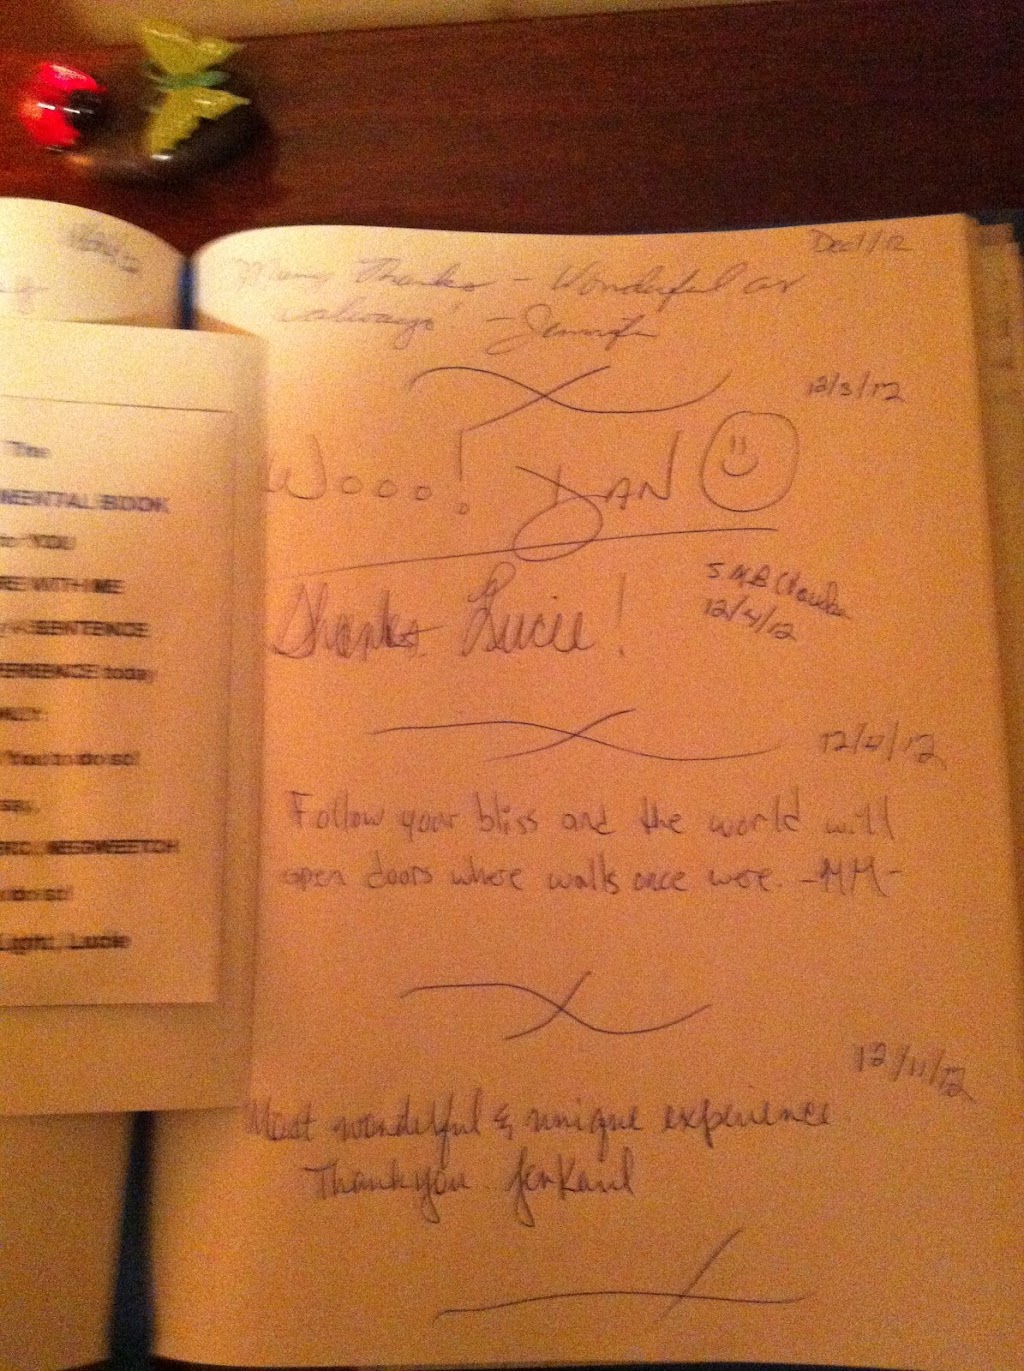 The
MENTAL BOOK
to YOU
RE WITH ME
SENTENCE
PERIENCE today
You to do so!
MEEGWEETCH
do so!
Light, Lucie
Dec 1/12
Many Thanks - Wonderful as
always! - Jennifer
12/3/12
Wooo! DAN
Thanks Lucie!
12/4/12
12/4/12
Follow your bliss and the world will
open doors where walls once were. -MM-
12/11/12
Most wonderful & unique experience
Thank you. Jen